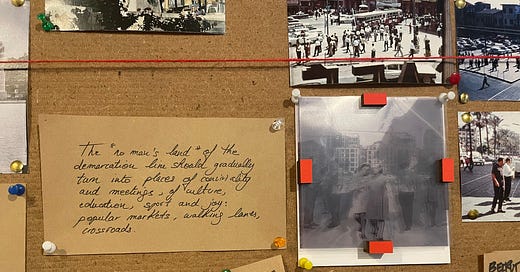 The "no man's land" of the
demarcation line should gradually
turn into places of conviviality
and meetings, of culture,
education, sport and joy:
popular markets, walking lanes,
crossroads.